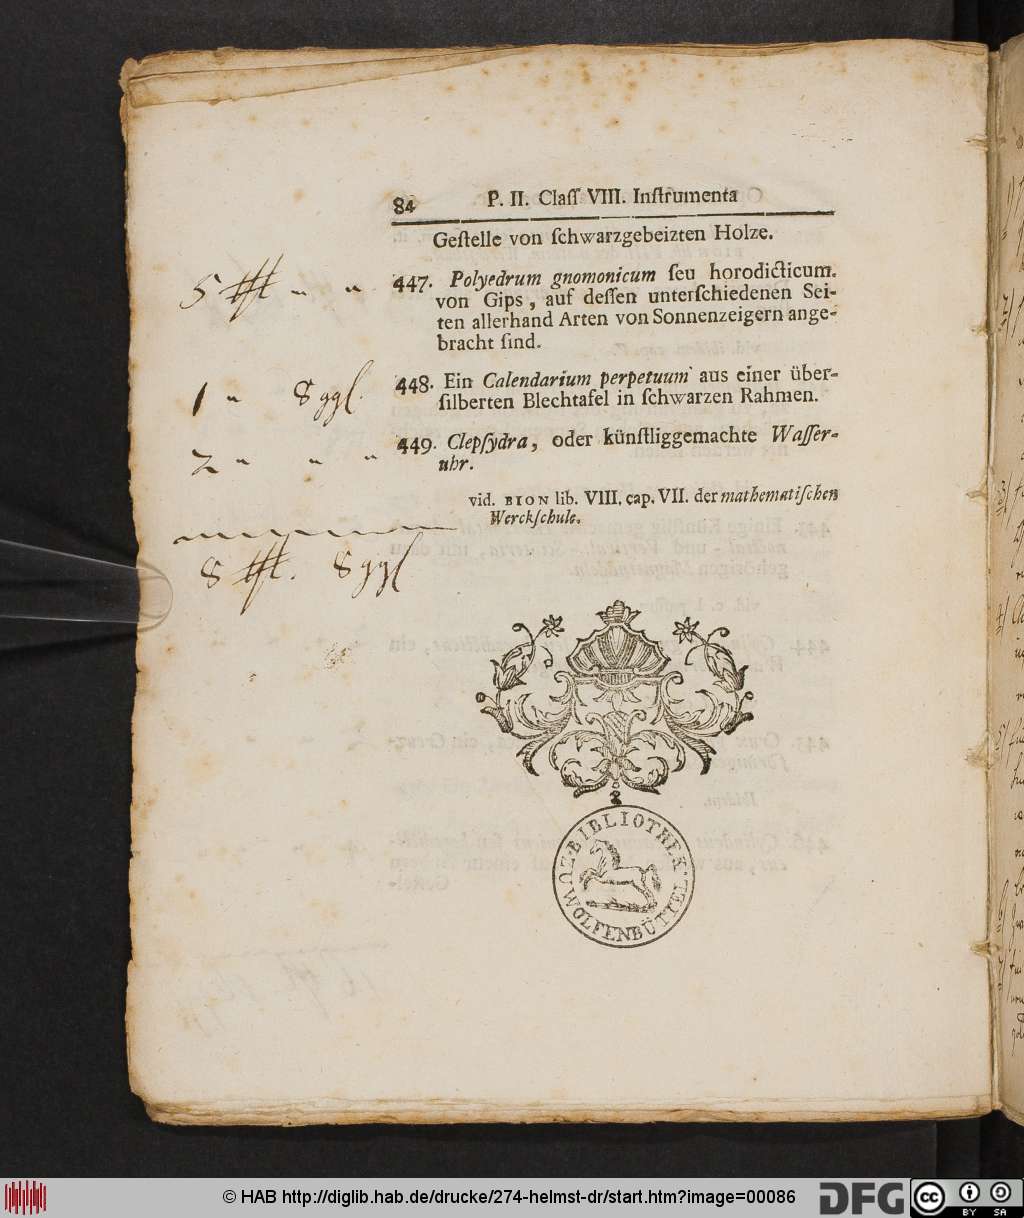 84 P. II. Claſſ VIII. Inſtrumenta
Geſtelle von ſchwarzgebeizten Holze.
5 thl " " 447. Polyedrum gnomonicum ſeu horodicticum.
von Gips, auf deſſen unterſchiedenen Sei-
ten allerhand Arten von Sonnenzeigern ange-
bracht ſind.
1 " 8 ggl. 448. Ein Calendarium perpetuum aus einer über-
ſilberten Blechtafel in ſchwarzen Rahmen.
2 " " " 449. Clepſydra, oder künſtliggemachte Waſſer-
uhr.
vid. BION lib. VIII. cap. VII. der mathematiſchen
Werckſchule.
8 thl. 8 ggl
BIBLIOTHEK
ZU WOLFENBÜTTEL
© HAB http://diglib.hab.de/drucke/274-helmst-dr/start.htm?image=00086
DFG
cc BY SA